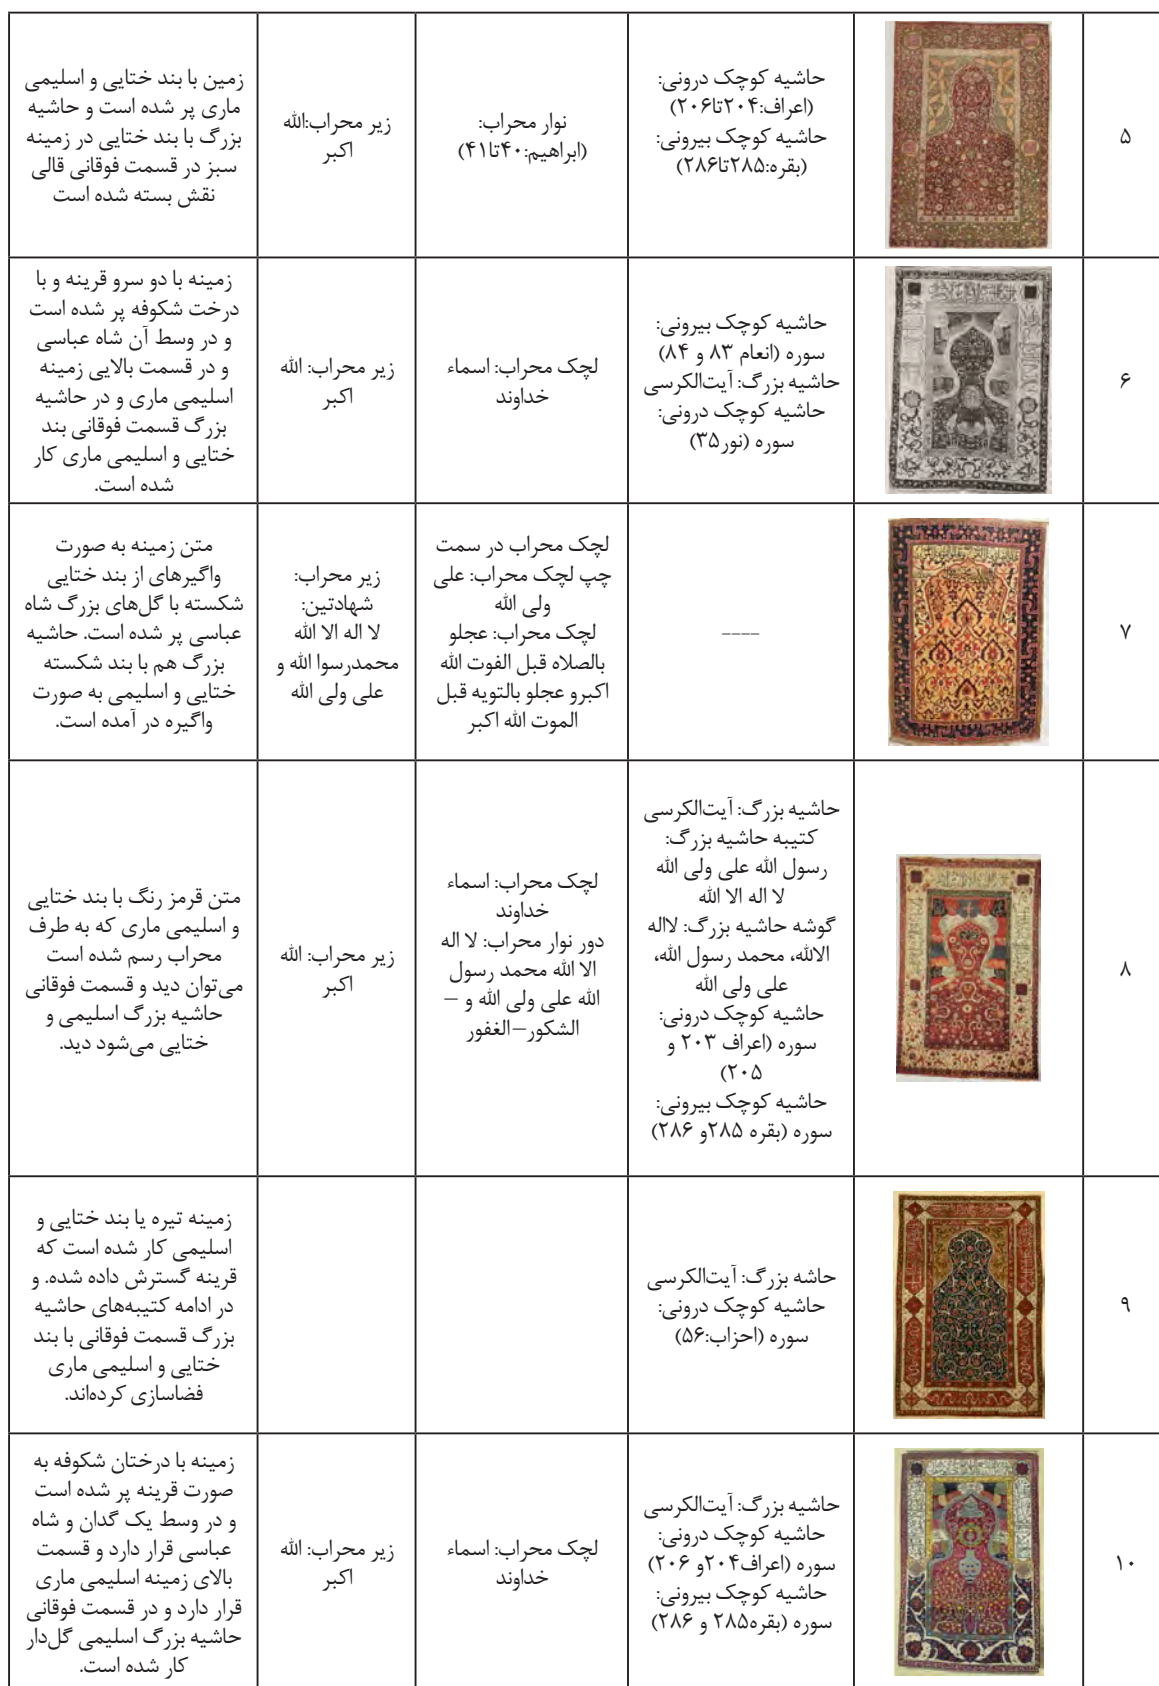 ۵
حاشیه کوچک درونی:
(اعراف:۲۰۴تا۲۰۶)
حاشیه کوچک بیرونی:
(بقره:۲۸۵تا۲۸۶)
نوار محراب:
(ابراهیم:۴۰تا۴۱)
زیر محراب:الله
اکبر
زمین با بند ختایی و اسلیمی
ماری پر شده است و حاشیه
بزرگ با بند ختایی در زمینه
سبز در قسمت فوقانی قالی
نقش بسته شده است
۶
حاشیه کوچک بیرونی:
سوره (انعام ۸۳ و ۸۴)
حاشیه بزرگ: آیت‌الکرسی
حاشیه کوچک درونی:
سوره (نور۳۵)
لچک محراب: اسماء
خداوند
زیر محراب: الله
اکبر
زمینه با دو سرو قرینه و با
درخت شکوفه پر شده است
و در وسط آن شاه عباسی
و در قسمت بالایی زمینه
اسلیمی ماری و در حاشیه
بزرگ قسمت فوقانی بند
ختایی و اسلیمی ماری کار
شده است.
۷
----
لچک محراب در سمت
چپ لچک محراب: علی
ولی الله
لچک محراب: عجلو
بالصلاه قبل الفوت الله
اکبرو عجلو بالتویه قبل
الموت الله اکبر
زیر محراب:
شهادتین:
لا اله الا الله
محمدرسوا الله و
علی ولی الله
متن زمینه به صورت
واگیرهای از بند ختایی
شکسته با گل‌های بزرگ شاه
عباسی پر شده است. حاشیه
بزرگ هم با بند شکسته
ختایی و اسلیمی به صورت
واگیره در آمده است.
۸
حاشیه بزرگ: آیت‌الکرسی
کتیبه حاشیه بزرگ:
رسول الله علی ولی الله
لا اله الا الله
گوشه حاشیه بزرگ: لااله
الالله، محمد رسول الله،
علی ولی الله
حاشیه کوچک درونی:
سوره (اعراف ۲۰۳ و
۲۰۵)
حاشیه کوچک بیرونی:
سوره (بقره ۲۸۵و ۲۸۶)
لچک محراب: اسماء
خداوند
دور نوار محراب: لا اله
الا الله محمد رسول
الله علی ولی الله و –
الشکور–الغفور
زیر محراب: الله
اکبر
متن قرمز رنگ با بند ختایی
و اسلیمی ماری که به طرف
محراب رسم شده است
می‌توان دید و قسمت فوقانی
حاشیه بزرگ اسلیمی و
ختایی می‌شود دید.
۹
حاشه بزرگ: آیت‌الکرسی
حاشیه کوچک درونی:
سوره (احزاب:۵۶)
زمینه تیره یا بند ختایی و
اسلیمی کار شده است که
قرینه گسترش داده شده. و
در ادامه کتیبه‌های حاشیه
بزرگ قسمت فوقانی با بند
ختایی و اسلیمی ماری
فضاسازی کرده‌اند.
۱۰
حاشیه بزرگ: آیت‌الکرسی
حاشیه کوچک درونی:
سوره (اعراف۲۰۴و ۲۰۶)
حاشیه کوچک بیرونی:
سوره (بقره۲۸۵ و ۲۸۶)
لچک محراب: اسماء
خداوند
زیر محراب: الله
اکبر
زمینه با درختان شکوفه به
صورت قرینه پر شده است
و در وسط یک گدان و شاه
عباسی قرار دارد و قسمت
بالای زمینه اسلیمی ماری
قرار دارد و در قسمت فوقانی
حاشیه بزرگ اسلیمی گل‌دار
کار شده است.